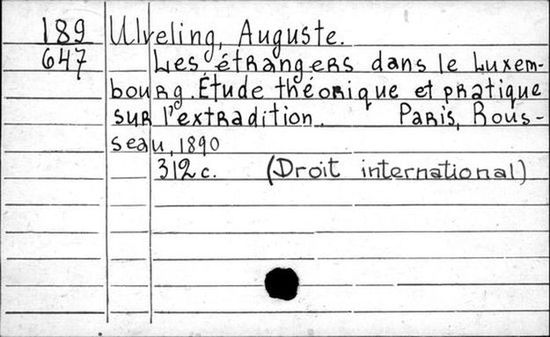 189 Ulveling, Auguste.
647 Les étrangers dans le Luxem-
bourg. Étude théorique et pratique
sur l'extradition. Paris, Rous-
seau, 1890
312 c. (Droit international)